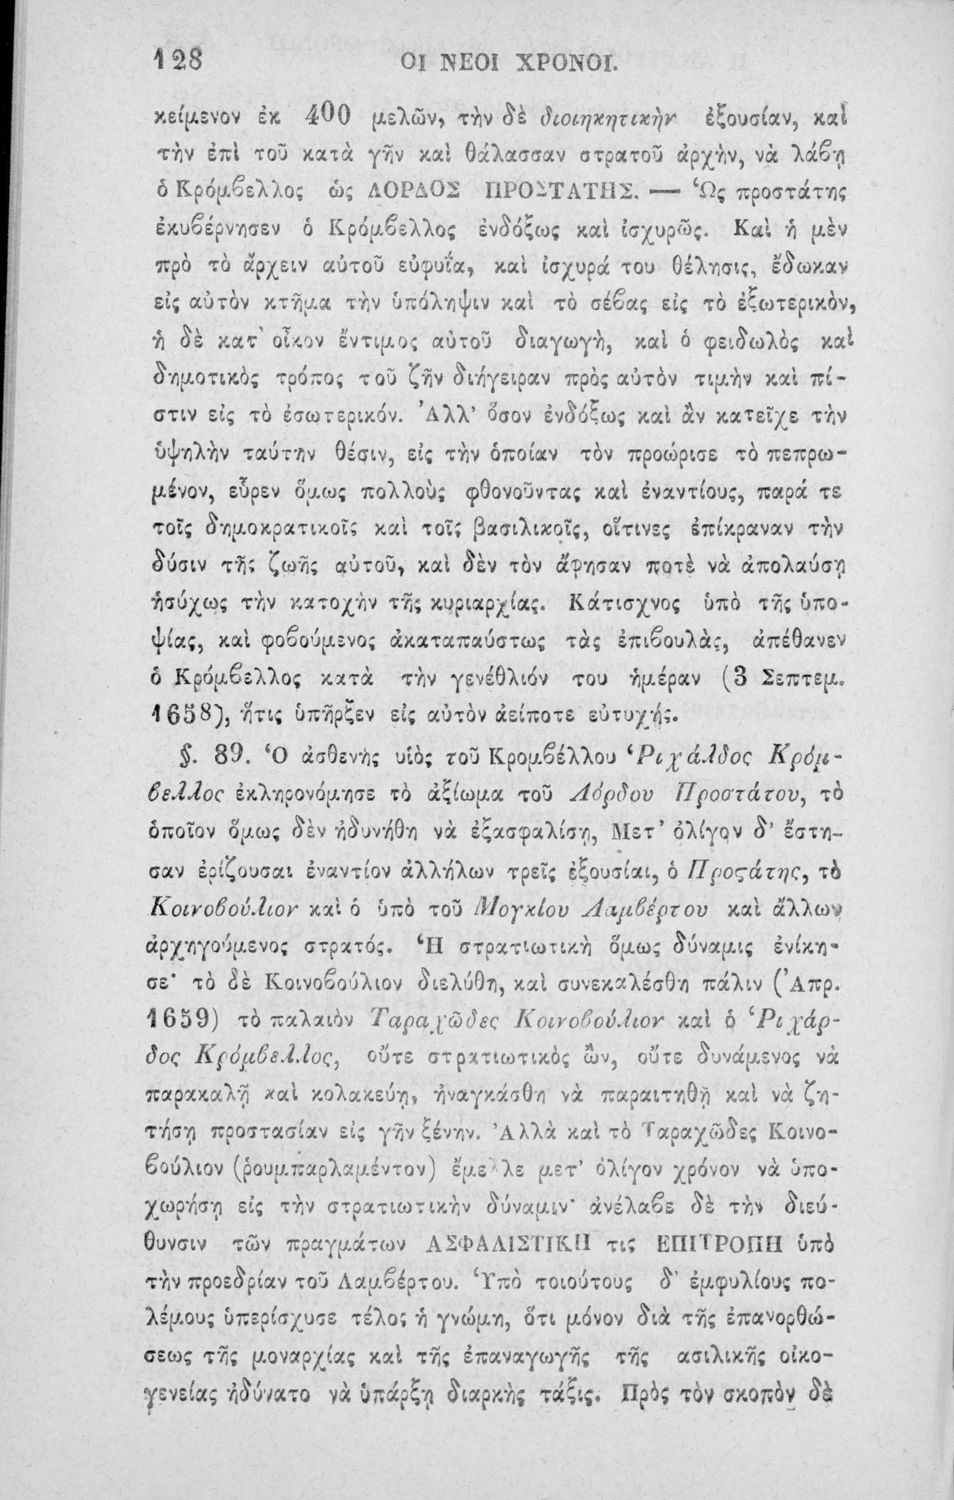 128 ΟΙ ΝΕΟΙ ΧΡΟΝΟΙ.
κείμενον ἐκ 400 μελῶν, τὴν δὲ διοιηκητικὴν ἐξουσίαν, καὶ
τὴν ἐπὶ τοῦ κατὰ γῆν καὶ θάλασσαν στρατοῦ ἀρχὴν, νὰ λάβῃ
ὁ Κρόμβελλος ὡς ΛΟΡΔΟΣ ΠΡΟΣΤΑΤΗΣ. — Ὡς προστάτης
ἐκυβέρνησεν ὁ Κρόμβελλος ἐνδόξως καὶ ἰσχυρῶς. Καὶ ἡ μὲν
πρὸ τὸ ἄρχειν αὐτοῦ εὐφυΐα, καὶ ἰσχυρά του θέλησις, ἔδωκαν
εἰς αὐτὸν κτῆμα τὴν ὑπόληψιν καὶ τὸ σέβας εἰς τὸ ἐξωτερικὸν,
ἡ δὲ κατ' οἶκον ἔντιμος αὐτοῦ διαγωγὴ, καὶ ὁ φειδωλὸς καὶ
δημοτικὸς τρόπος τοῦ ζῆν διήγειραν πρὸς αὐτὸν τιμὴν καὶ πί-
στιν εἰς τὸ ἐσωτερικόν. Ἀλλ' ὅσον ἐνδόξως καὶ ἂν κατεῖχε τὴν
ὑψηλὴν ταύτην θέσιν, εἰς τὴν ὁποίαν τὸν προώρισε τὸ πεπρω-
μένον, εὗρεν ὅμως πολλοὺς φθονοῦντας καὶ ἐναντίους, παρά τε
τοῖς δημοκρατικοῖς καὶ τοῖς βασιλικοῖς, οἵτινες ἐπίκραναν τὴν
δύσιν τῆς ζωῆς αὐτοῦ, καὶ δὲν τὸν ἄφησαν ποτὲ νὰ ἀπολαύσῃ
ἡσύχως τὴν κατοχὴν τῆς κυριαρχίας. Κάτισχνος ὑπὸ τῆς ὑπο-
ψίας, καὶ φοβούμενος ἀκαταπαύστως τὰς ἐπιβουλὰς, ἀπέθανεν
ὁ Κρόμβελλος κατὰ τὴν γενέθλιόν του ἡμέραν (3 Σεπτεμ.
1658), ἥτις ὑπῆρξεν εἰς αὐτὸν ἀείποτε εὐτυχής.
§. 89. Ὁ ἀσθενὴς υἱὸς τοῦ Κρομβέλλου Ῥιχάλδος Κρόμ-
βελλος ἐκληρονόμησε τὸ ἀξίωμα τοῦ Λόρδου Προστάτου, τὸ
ὁποῖον ὅμως δὲν ἠδυνήθη νὰ ἐξασφαλίσῃ, Μετ' ὀλίγον δ' ἔστη-
σαν ἐρίζουσαι ἐναντίον ἀλλήλων τρεῖς ἐξουσίαι, ὁ Προςάτης, τὸ
Κοινοβούλιον καὶ ὁ ὑπὸ τοῦ Μογκίου Λαμβέρτου καὶ ἄλλων
ἀρχηγούμενος στρατός. Ἡ στρατιωτικὴ ὅμως δύναμις ἐνίκη-
σε· τὸ δὲ Κοινοβούλιον διελύθη, καὶ συνεκαλέσθη πάλιν (Ἀπρ.
1659) τὸ παλαιὸν Ταραχῶδες Κοινοβούλιον καὶ ὁ Ῥιχάρ-
δος Κρόμβελλος, οὔτε στρατιωτικὸς ὢν, οὔτε δυνάμενος νὰ
παρακαλῇ καὶ κολακεύῃ, ἠναγκάσθη νὰ παραιτηθῇ καὶ νὰ ζη-
τήσῃ προστασίαν εἰς γῆν ξένην. Ἀλλὰ καὶ τὸ Ταραχῶδες Κοινο-
βούλιον (ῥουμπαρλαμέντον) ἔμελλε μετ' ὀλίγον χρόνον νὰ ὑπο-
χωρήσῃ εἰς τὴν στρατιωτικὴν δύναμιν· ἀνέλαβε δὲ τὴν διεύ-
θυνσιν τῶν πραγμάτων ΑΣΦΑΛΙΣΤΙΚΗ τις ΕΠΙΤΡΟΠΗ ὑπὸ
τὴν προεδρίαν τοῦ Λαμβέρτου. Ὑπὸ τοιούτους δ' ἐμφυλίους πο-
λέμους ὑπερίσχυσε τέλος ἡ γνώμη, ὅτι μόνον διὰ τῆς ἐπανορθώ-
σεως τῆς μοναρχίας καὶ τῆς ἐπαναγωγῆς τῆς ασιλικῆς οἰκο-
γενείας ἠδύνατο νὰ ὑπάρξῃ διαρκὴς τάξις. Πρὸς τὸν σκοπὸν δὲ